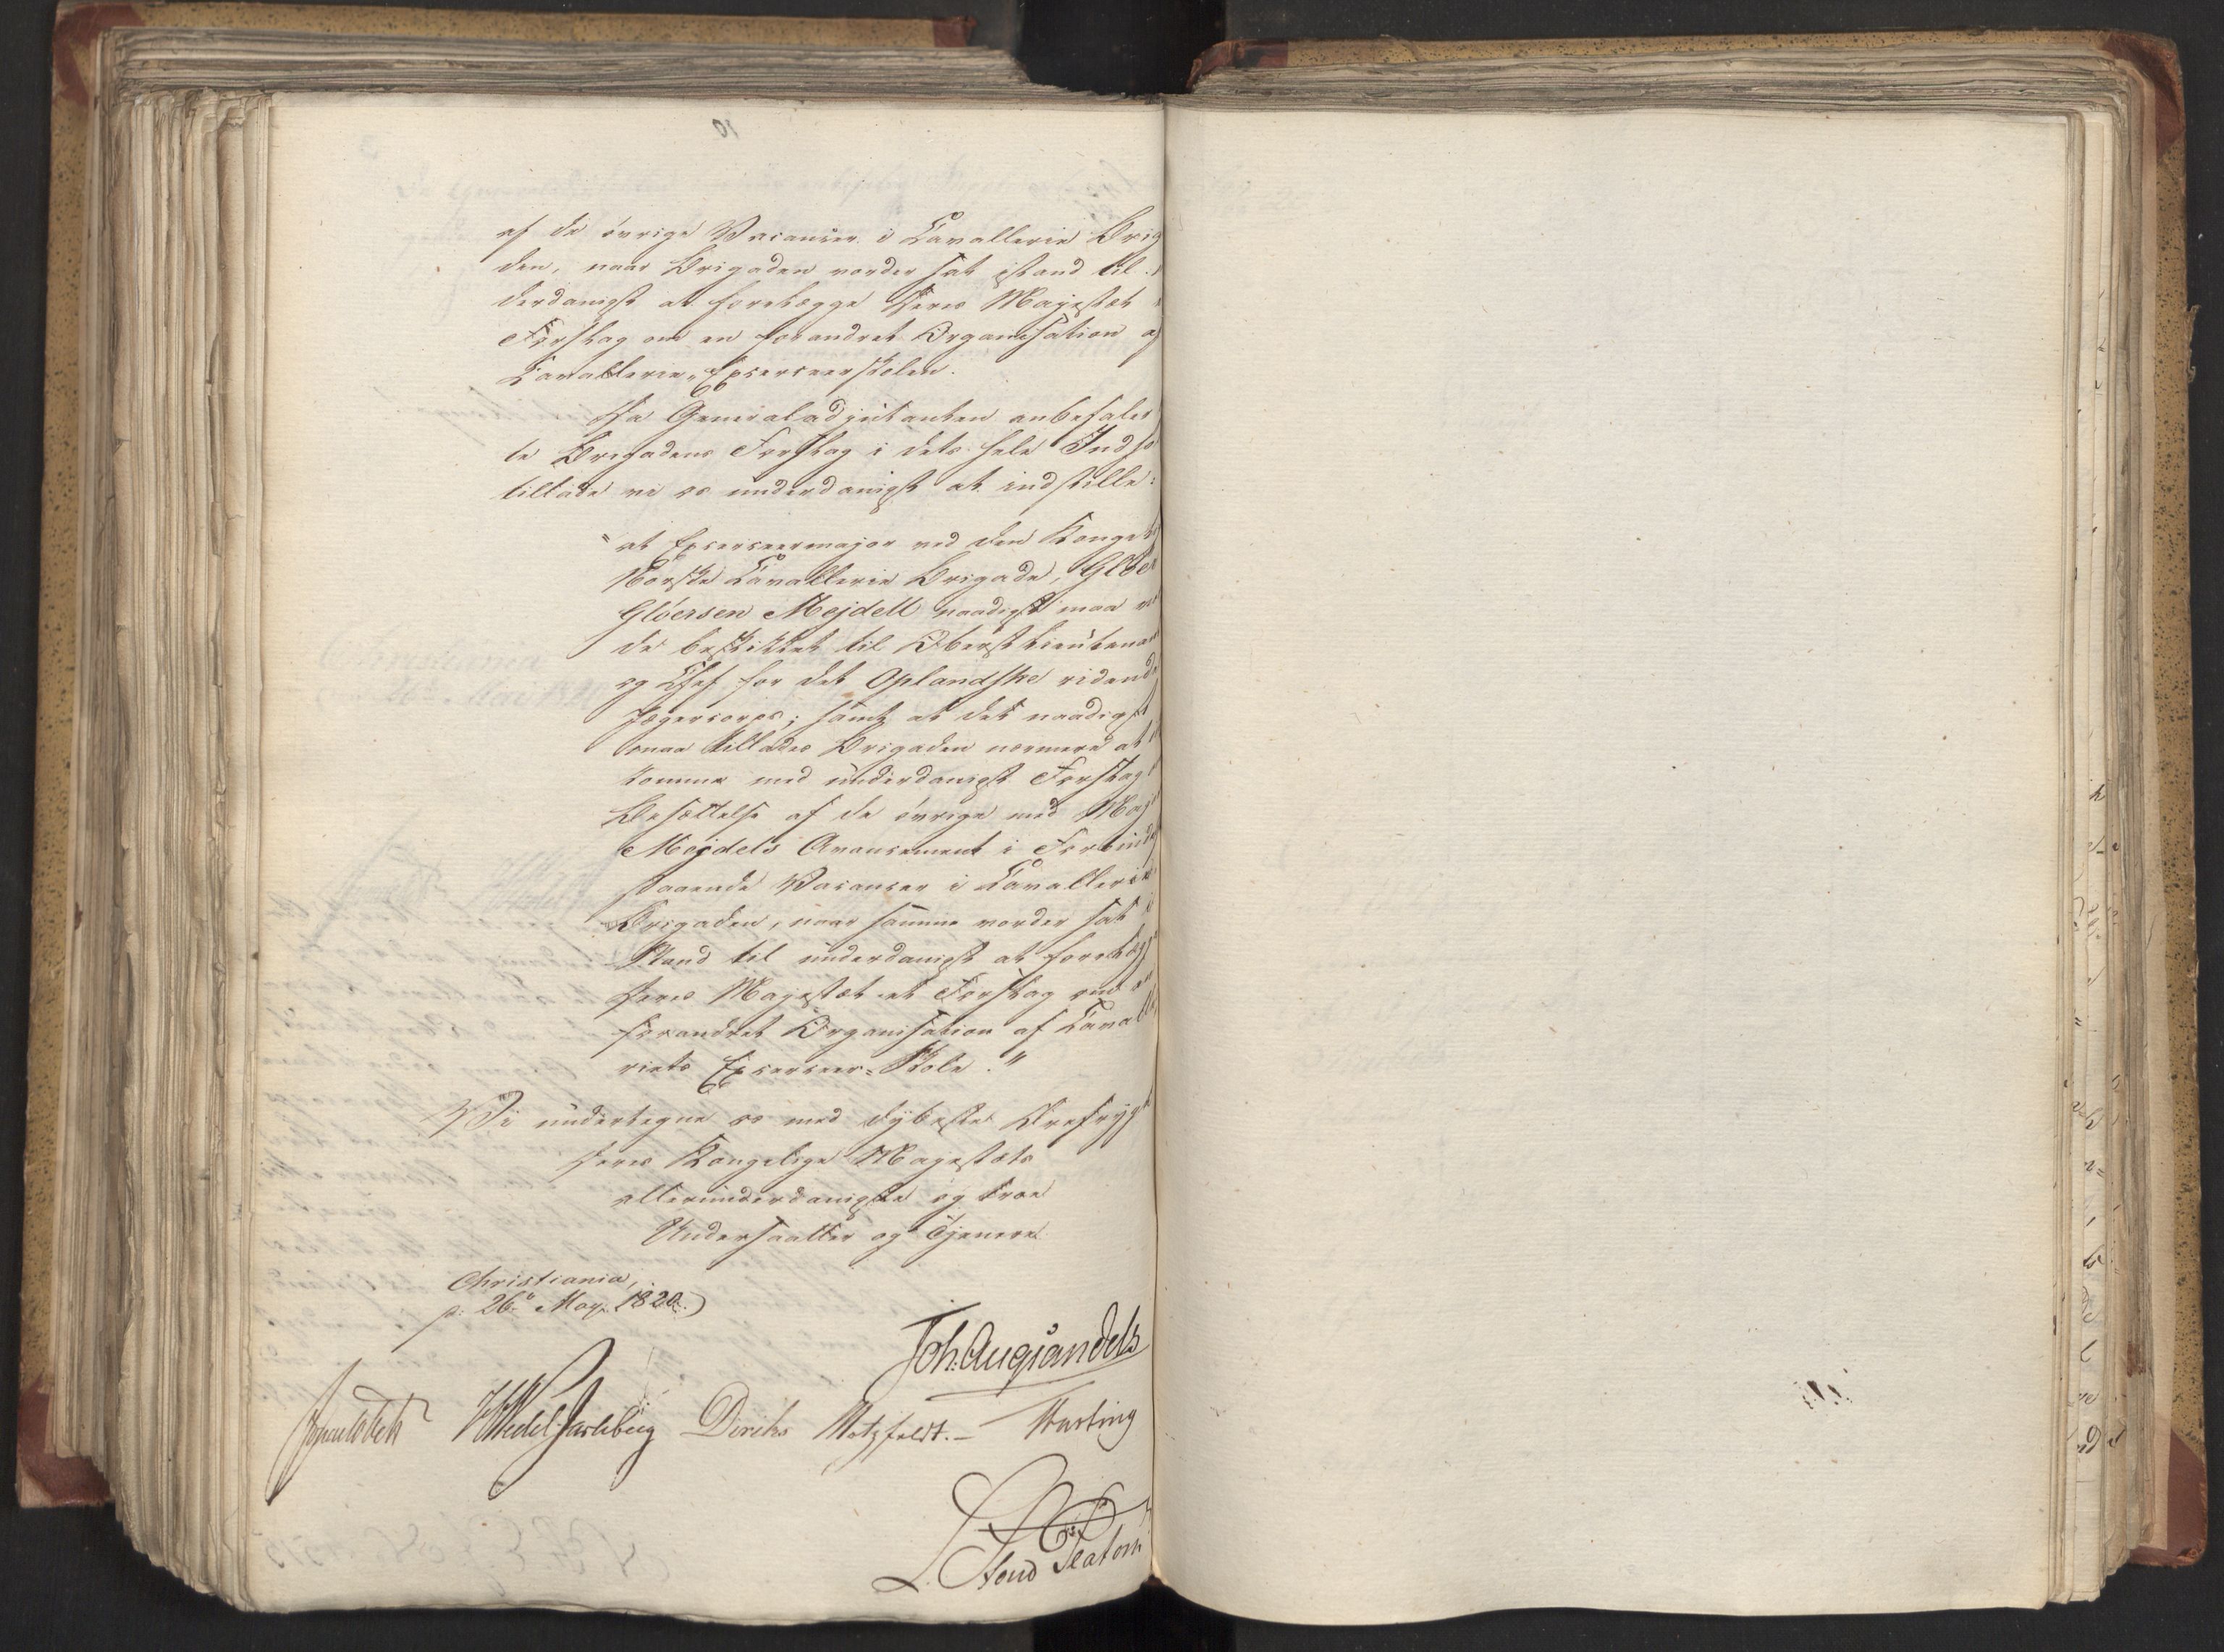 af de övrige Vacancer i Cavallerie Brig
den, naar Brigaden vorder sat istand til
derdanigst at forelægge Deres Majestæt
Forslag om en forandret Organisation af
Cavallerie-Exerceerskolen.
Da Generaladjutanten anbefaler
te Brigadens Forslag i dets hele Indho
tillade vi os underdanigst at indstille:
"at Exerceermajor ved den Kongel
Norske Cavallerie Brigade, Glöer
Glöersen Mejdell naadigst maa vor
de beskikket til Oberstlieutenant
og Chef for det Oplandske ridende
Jægercorps; samt at det naadigst
maa tillades Brigaden nærmere at
komme med underdanigst Forslag
Besættelse af de övrige med Maj
Mejdels Avancement i Forbinde
staaende Vacancer i Cavallerie
Brigaden, naar samme vorder sat i
Stand til underdanigst at forelægge
Deres Majestæt et Forslag om en
forandret Organisation af Cavalle
riets Exerceer-Skole."
Vi undertegne os med dybeste Ærefrygt
Deres Kongelige Majestæts
allerunderdanigste og troe
Undersaatter og Tjenere
Christiania,
d: 26de May 1820.
Joh. Aug. Sandels
Jonas Collett HWedel Jarlsberg Diriks Motzfeldt. Fasting
L. Stoud Platou